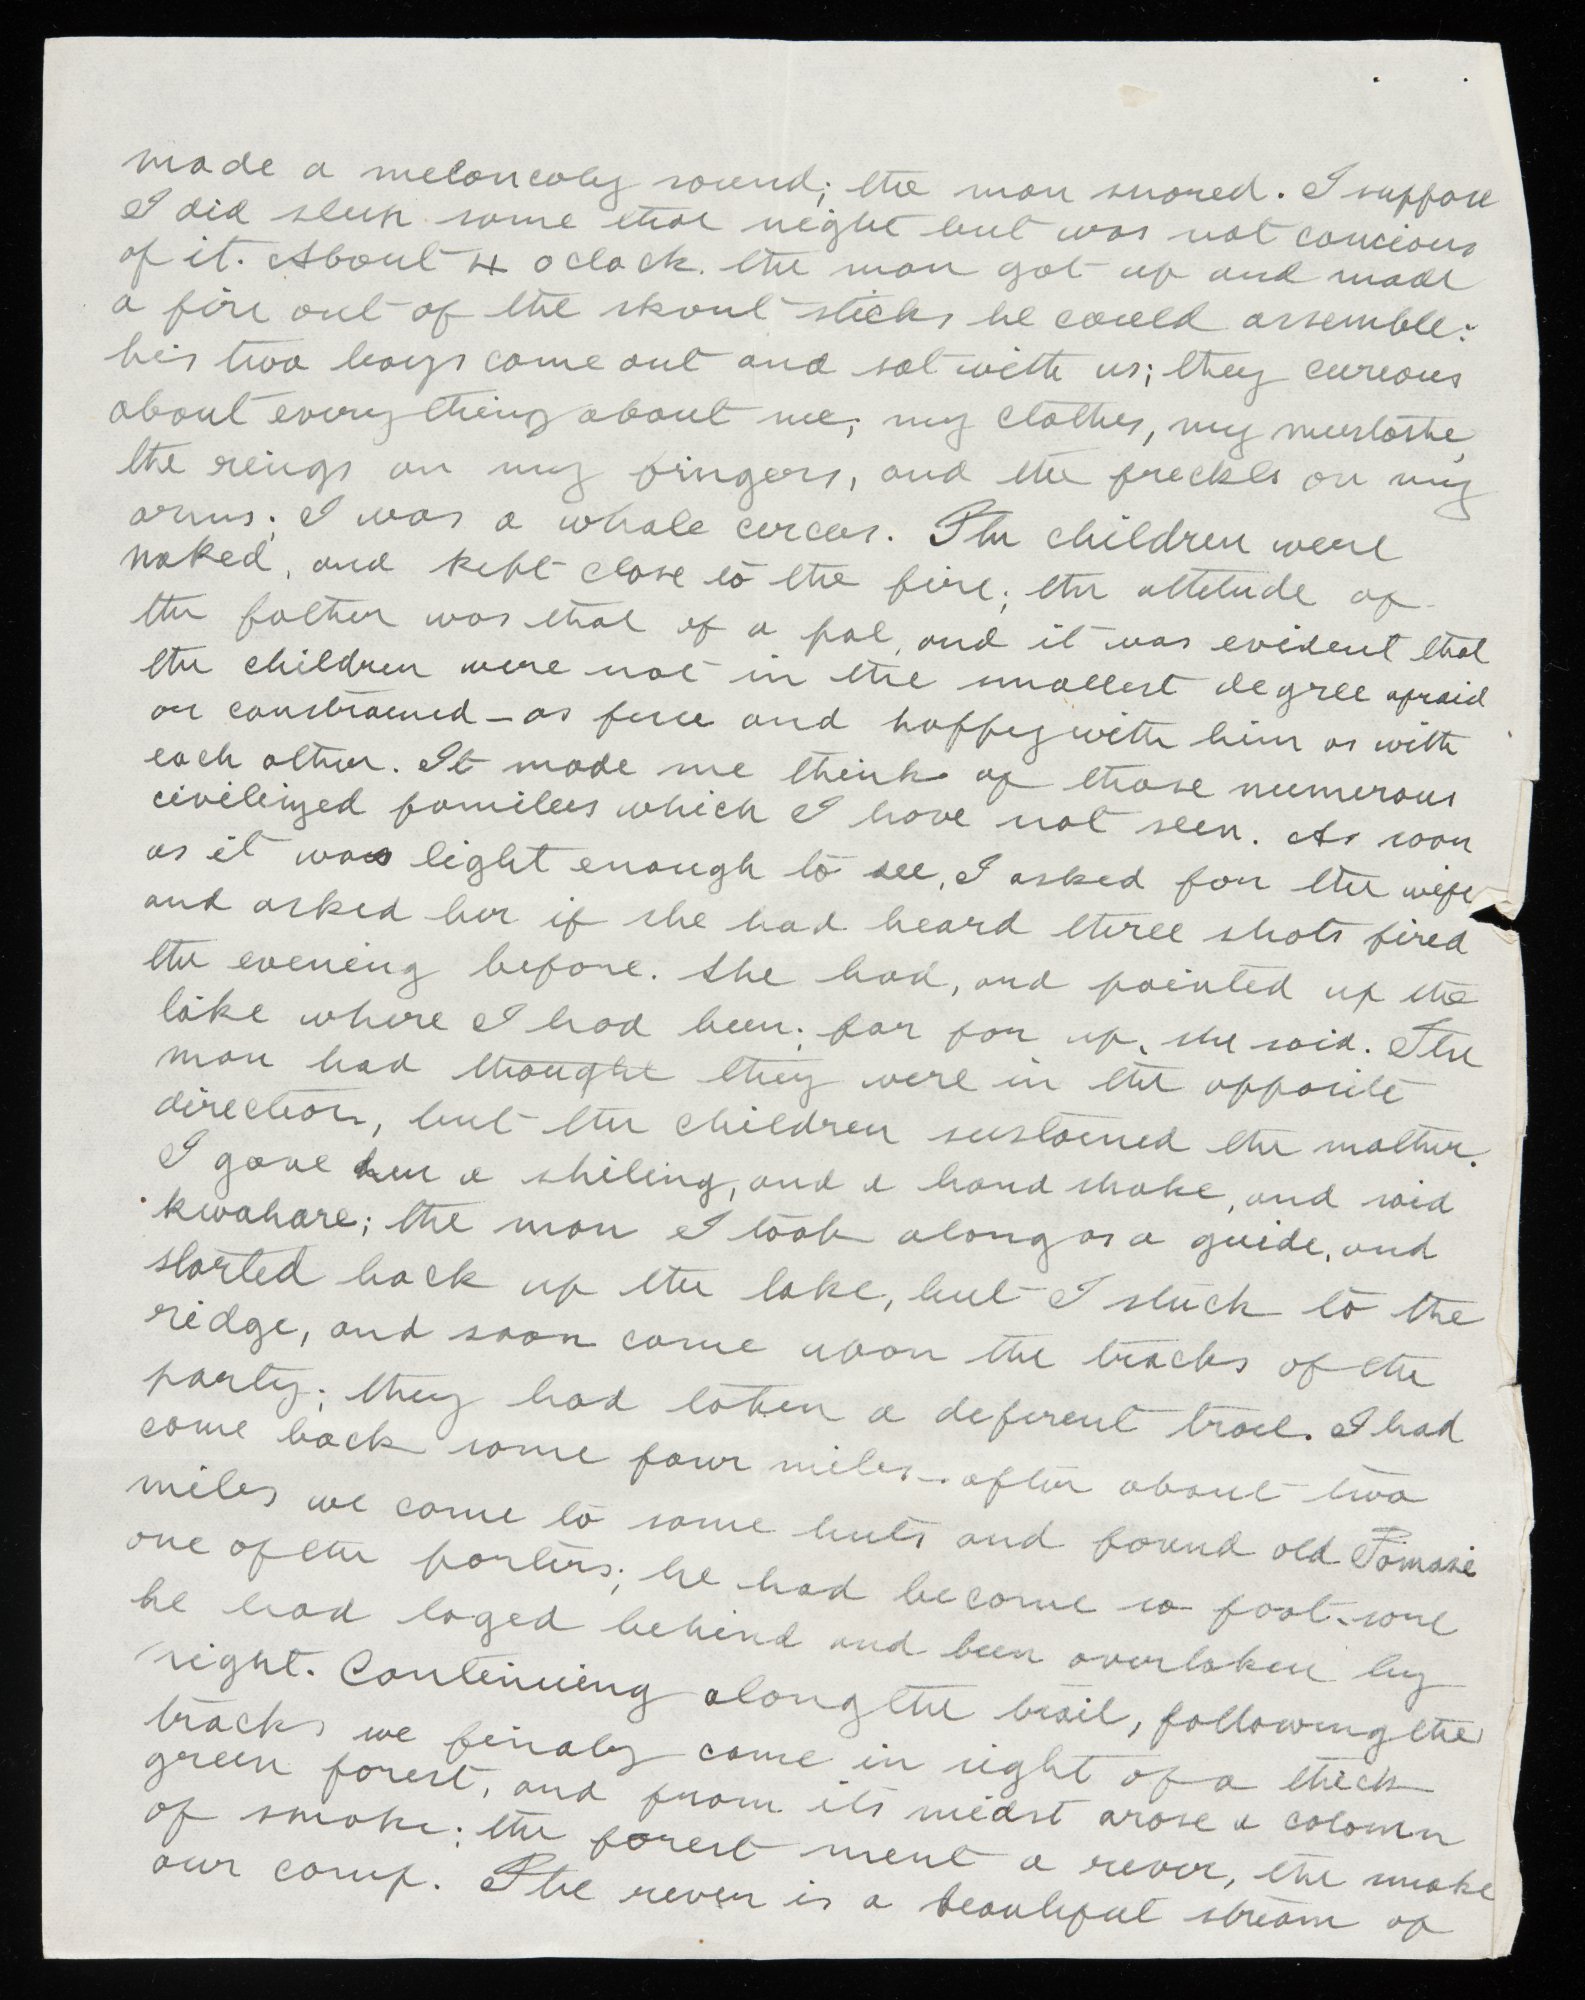 made a meloncoly sound; the man snored. I suppose
I did sleep some that night but was not concious
of it. About 4 oclock the man got up and made
a fire out of the skout sticks he could assemble:
his two boys came out and sat with us; they cureous
about everything about me; my clothes, my mustashe,
the reings on my fringers, and the freckls on my
arms; I was a whole circus. The children were
naked, and kept close to the fire; the attetude of
the father was that of a pal, and it was evedent that
the children were not in the smallest degree afraid
or constrained - as free and happy with him as with
each other. It made me think of those numerous
civilized families which I have not seen. As soon
as it was light enough to see, I asked for the wife
and asked her if she had heard three shots fired
the evening before. She had, and pointed up the
lake where I had been; far far up, she said. The
man had thought they were in the opposite
direction, but the children sustained the mother.
I gave her a shiling, and a hand shake, and said
kwahare; the man I took along as a guide, and
started back up the lake, but I stuck to the
ridge, and soon came upon the tracks of the
party; they had taken a deferent trail. I had
come back some four miles - after about two
miles we came to some huts and found old Tomasi
one of the porters; he had become so foot-sore
he had laged behind and been overtaken by
night. Continuing along the trail, following the
tracks we finaly came in sight of a thick
green forest, and from its midst arose a colomn
of smoke; the forest ment a rever, the smoke
our camp. The rever is a beautiful stream of